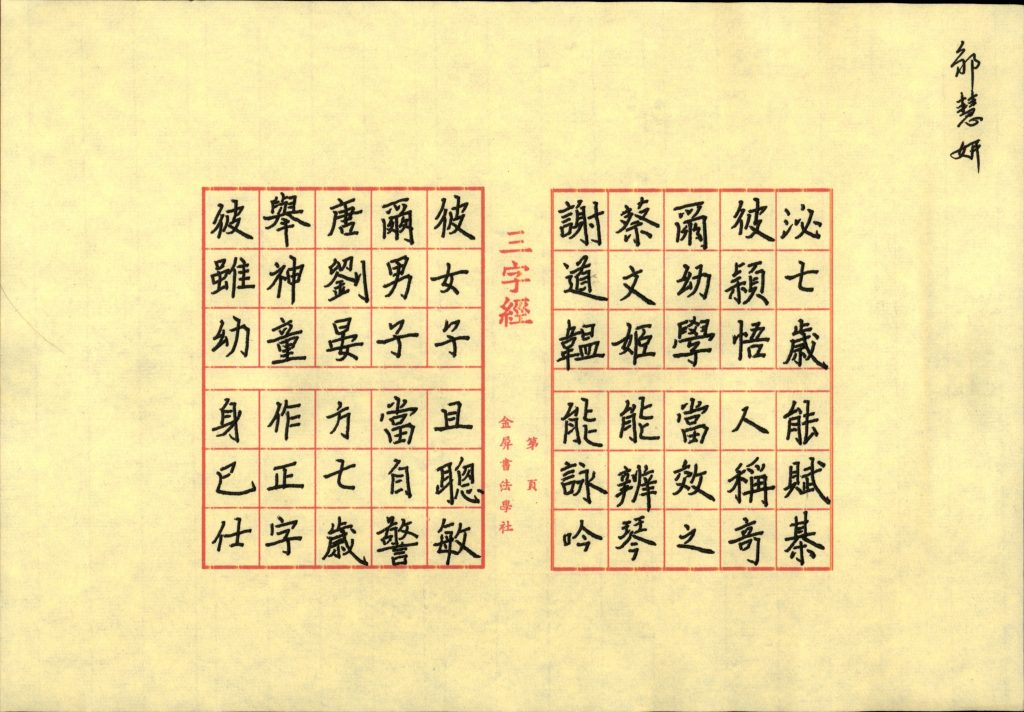 邹慧妍
泌七歲能賦碁
彼穎悟人稱奇
爾幼學當效之
蔡文姬能辨琴
謝道韞能詠吟
三字經
第 頁
金屏書法學社
彼女子且聰敏
爾男子當自警
唐劉晏方七歲
舉神童作正字
彼雖幼身已仕